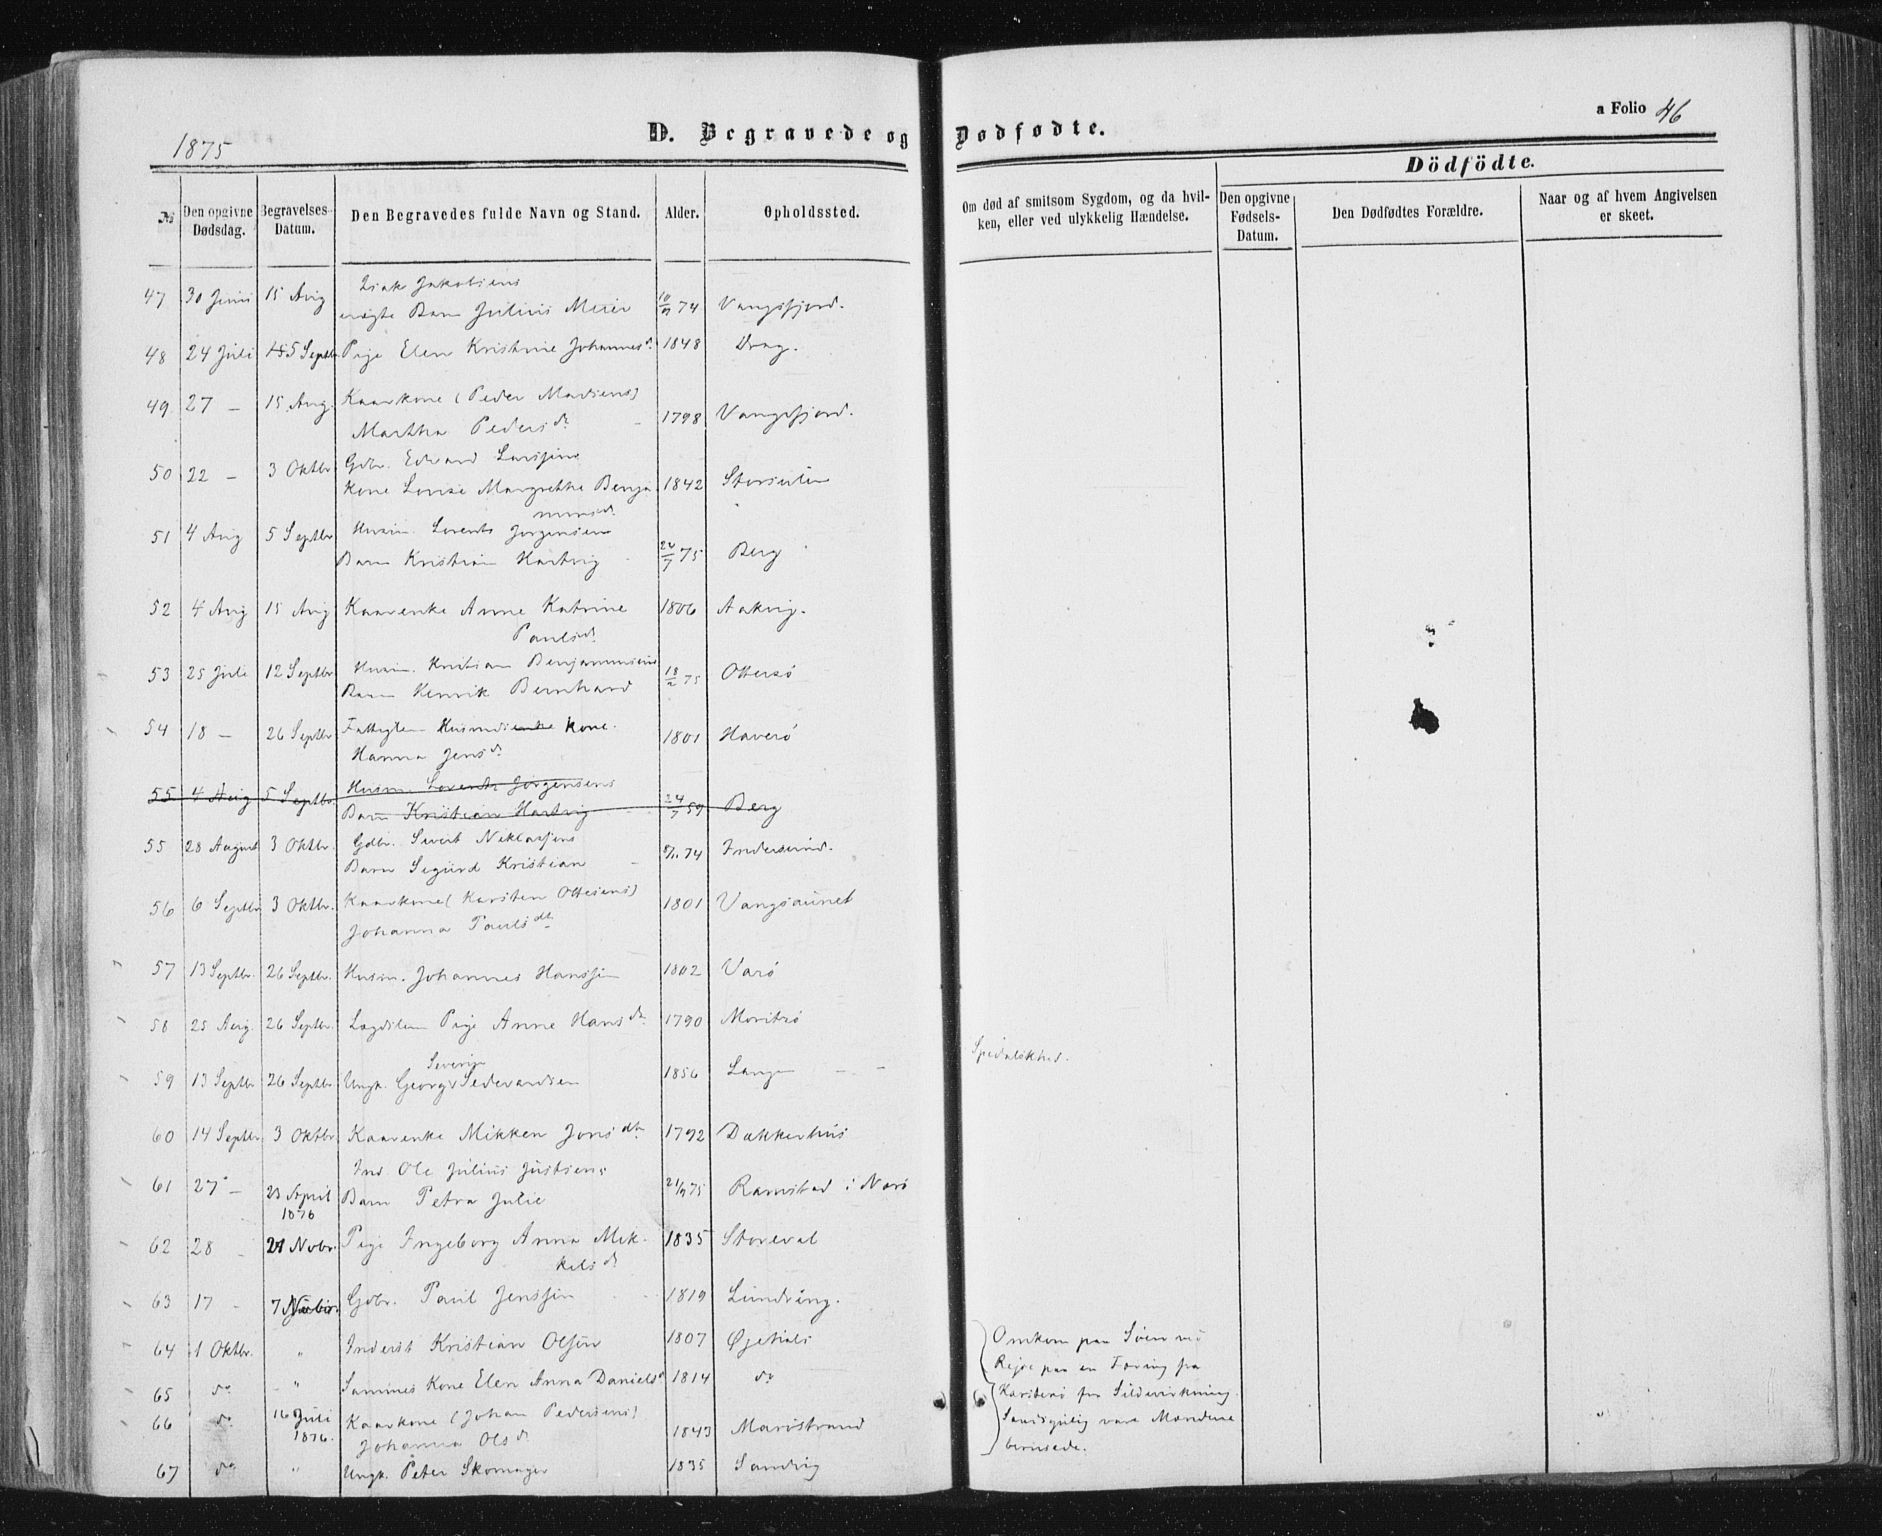 a Folio 46
1875
D. Begravede og Dødfødte.
Dödfödte.
№
Den opgivne Dødsdag.
Begravelses-Datum.
Den Begravedes fulde Navn og Stand.
Alder.
Opholdssted.
Om død af smitsom Sygdom, og da hvilken, eller ved ulykkelig Hændelse.
Den opgivne Fødsels-Datum.
Den Dødfødtes Forældre.
Naar og af hvem Angivelsen er skeet.
Isak Jakobsens
47 30 Juni 15 Aug ægte Barn Julius Meier 74 Vangsfjord.
48 24 Juli 5 Septbr Pige Elen Kristine Johannesd. 1848 Drag.
49 27 — 15 Aug. Kaarkone (Peder Madsens)
Martha Pedersd. 1798 Vangsfjord.
50 22 — 3 Oktbr Gdbr. Edvard Larssens
Kone Lovise Margrethe Benja 1842
minsd.
51 4 Aug 5 Septbr Husm. Lorents Jørgensens
Barn Kristian Hartvig 24/7 75 Berg
52 4 Aug 15 Aug Kaarenke Anne Katrine 1806 Aakvig.
Paulsd.
53 25 Juli 12 Septbr Husm. Kristian Benjaminsens
Barn Henrik Bernhard 18/2 75 Ottersø
54 18 — 26 Septbr Fattiglem Husmdsenke Kone.
Hanna Jensd. 1801 Haverø
55 4 Aug 5 Septbr. Husm. Lorents Jørgensens
Barn Kristian Hartvig 24/7 59 Berg
55 28 August 3 Oktbr. Gdbr. Sivert Niklassens
Barn Sigurd Kristian 74 Indersund.
56 6 Septbr 3 Oktbr. Kaarkone (Karsten Ottesens)
Johanna Paulsdt. 1801 Vangsaunet
57 13 Septbr. 26 Septbr. Husm. Johannes Hanssen 1802 Varø
58 25 Aug. 26 Septbr. Lægdslem Pige Anne Hansd. 1790
Severin
59 13 Septbr 26 Septbr Ungk. Georg Sedevardsen 1856 Lang
Spedalskhed.
60 14 Septbr 3 Oktbr Kaarenke Mikken Jonsdt. 1792 Dækkerhus
Ind. Ole Julius Justsens
61 27 — 23 April Barn Petra Julie 21/9 75 Ramstad i Narø
1876
62 28 21 Novbr. Pige Ingeborg Anna Mik- 1835 Storeval
kelsd.
63 17 7 Novbr. Gdbr. Paul Jenssen 1819 Lundring.
64 1 Oktbr. " Inderst Kristian Olsen 1807
65 do " Sammes Kone Elen Anna Danielsd 1814 do
66 do 16 Juli Kaarkone (Johan Pedersens)
1876. Johanna Olsd. 1843 Maristrand
67 do " Ungk. Peter Skomager 1835 Sandvig
Omkom paa Søen ved
Rejse paa en Færing fra
Karsterø fra Sildevirkning.
Sandsynlig vare Mændene
berusede.